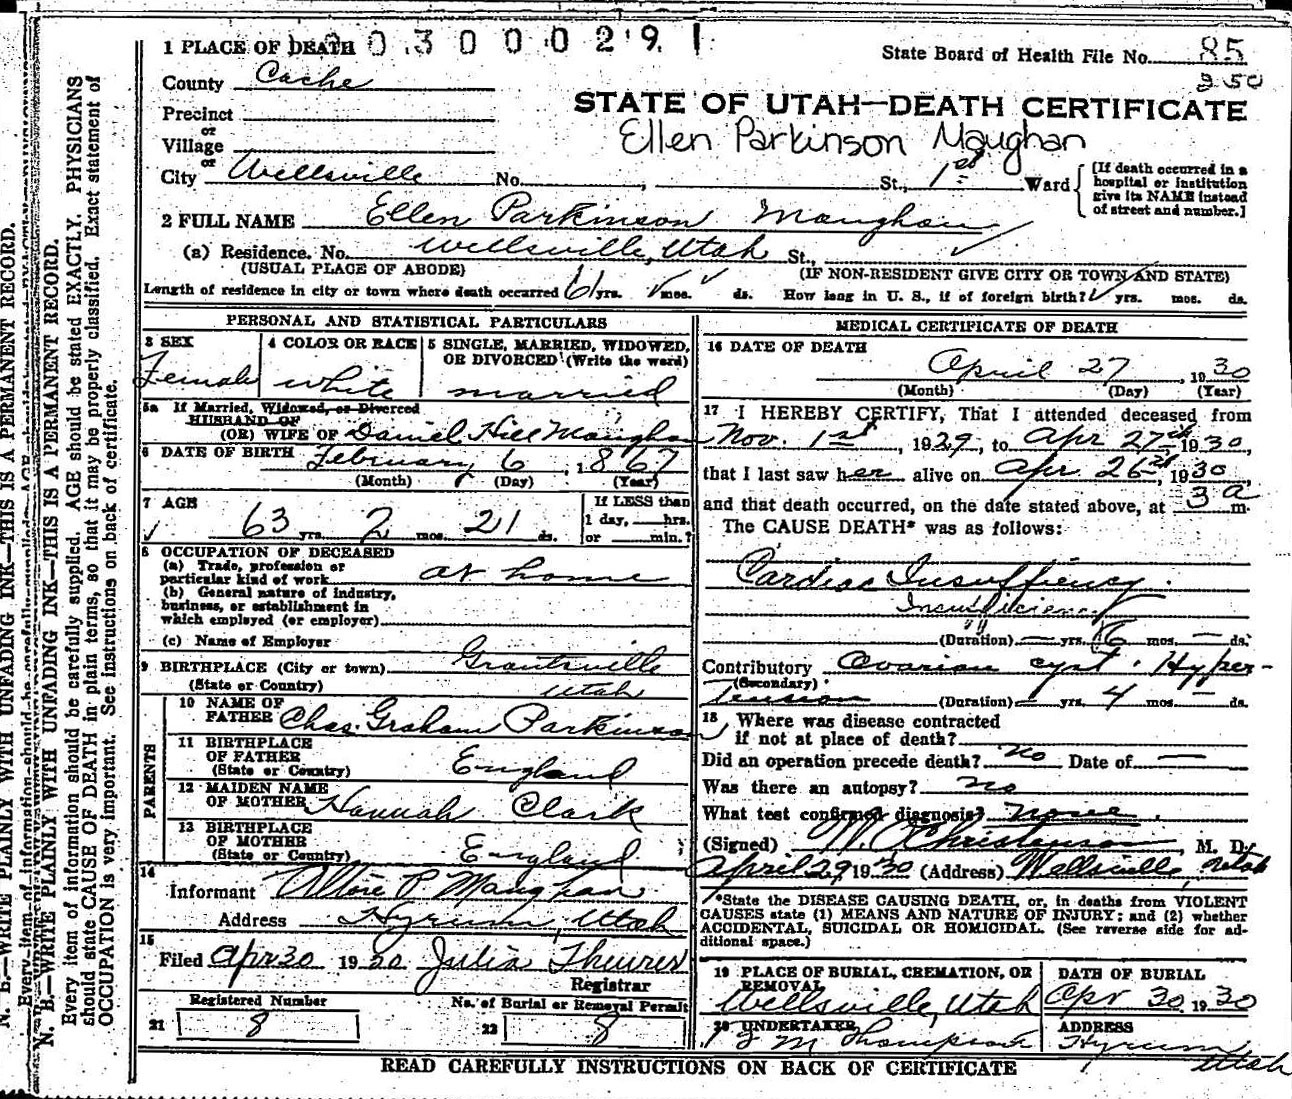 1 PLACE OF DEATH
3 0 0 0 2 9 1
State Board of Health File No. 85
350
County Cache
STATE OF UTAH—DEATH CERTIFICATE
Precinct
or
Village
or
Ellen Parkinson Maughan
City Wellsville No. , St., 1st Ward
[If death occurred in a
hospital or institution
give its NAME instead
of street and number.]
2 FULL NAME Ellen Parkinson Maughan
(a) Residence. No. Wellsville, Utah St.,
(USUAL PLACE OF ABODE) (IF NON-RESIDENT GIVE CITY OR TOWN AND STATE)
Length of residence in city or town where death occurred 61 yrs. mos. ds. How long in U. S., if of foreign birth? yrs. mos. ds.
PERSONAL AND STATISTICAL PARTICULARS
3 SEX 4 COLOR OR RACE 5 SINGLE, MARRIED, WIDOWED,
OR DIVORCED (Write the word)
Female white married
5a If Married, Widowed, or Divorced
HUSBAND OF
(OR) WIFE OF Daniel Hill Maughan
6 DATE OF BIRTH February 6, 1867
(Month) (Day) (Year)
7 AGE If LESS than
63 yrs. 2 mos. 21 ds. 1 day, hrs.
or min.?
8 OCCUPATION OF DECEASED
(a) Trade, profession or
particular kind of work at home
(b) General nature of industry,
business, or establishment in
which employed (or employer)
(c) Name of Employer
9 BIRTHPLACE (City or town) Grantsville
(State or Country) Utah
PARENTS
10 NAME OF
FATHER Chas. Graham Parkinson
11 BIRTHPLACE
OF FATHER
(State or Country) England
12 MAIDEN NAME
OF MOTHER Hannah Clark
13 BIRTHPLACE
OF MOTHER
(State or Country) England
14
Informant P. Maughan
Address Hyrum, Utah
15
Filed Apr 30 1930 Julia Theurer
Registrar
Registered Number No. of Burial or Removal Permit
21 8 22 8
MEDICAL CERTIFICATE OF DEATH
16 DATE OF DEATH
April 27, 1930
(Month) (Day) (Year)
17 I HEREBY CERTIFY, That I attended deceased from
Nov. 1st, 1929, to Apr 27th 1930,
that I last saw her alive on Apr 26st, 1930
and that death occurred, on the date stated above, at 3 a m.
The CAUSE DEATH* was as follows:
Cardiac Insuffiency.
Insufficiency
(Duration) — yrs. 6 mos. — ds.
Contributory Ovarian cyst. Hyper-
(Secondary)
tension (Duration) — yrs. 4 mos. — ds.
18 Where was disease contracted
if not at place of death?
Did an operation precede death? no Date of —
Was there an autopsy? no
What test confirmed diagnosis? none.
(Signed) W. O. Christenson, M. D.
April 29 1930 (Address) Wellsville, Utah
*State the DISEASE CAUSING DEATH, or, in deaths from VIOLENT
CAUSES state (1) MEANS AND NATURE OF INJURY: and (2) whether
ACCIDENTAL, SUICIDAL OR HOMICIDAL. (See reverse side for ad-
ditional space.)
19 PLACE OF BURIAL, CREMATION, OR
REMOVAL
Wellsville, Utah
DATE OF BURIAL
Apr 30 1930
20 UNDERTAKER
M Thompson
ADDRESS
Hyrum
Utah
READ CAREFULLY INSTRUCTIONS ON BACK OF CERTIFICATE
N. B.—WRITE PLAINLY WITH UNFADING INK—THIS IS A PERMANENT RECORD.
N. B.—WRITE PLAINLY WITH UNFADING INK—THIS IS A PERMANENT RECORD.
Every item of information should be carefully supplied. AGE should be stated EXACTLY. PHYSICIANS
should state CAUSE OF DEATH in plain terms, so that it may be properly classified. Exact statement of
OCCUPATION is very important. See instructions on back of certificate.